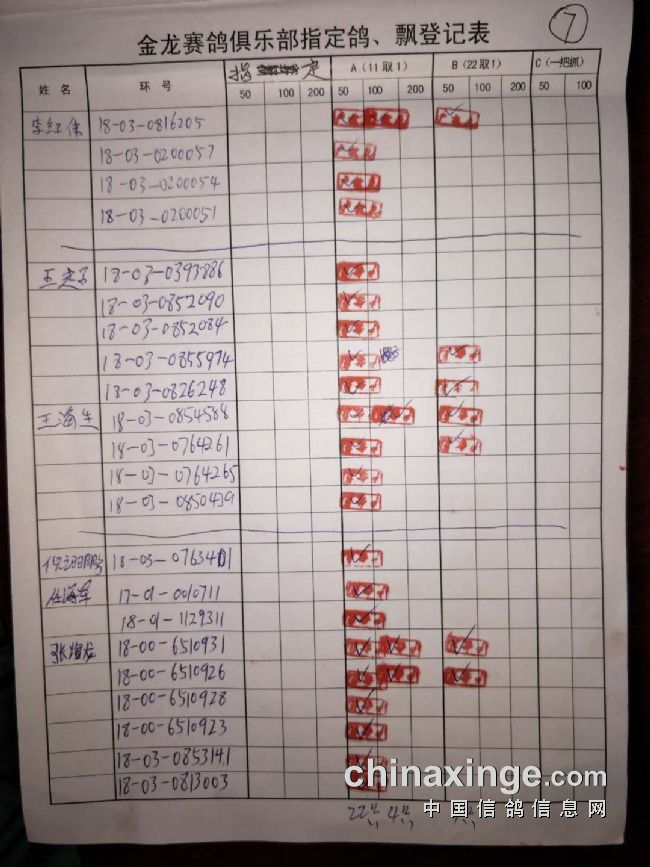 7
金龙赛鸽俱乐部指定鸽、飘登记表
姓 名 环 号 指 定 A (11取1) B (22取1) C (一把抓)
50 100 200 50 100 200 50 100 200 50 100
李红伟 18-03-0816205
18-03-0200057
18-03-0200054
18-03-0200051
18-03-0393886
18-03-0852090
18-03-0852084
18-03-0855974
18-03-0826248
王海生 18-03-0854588
18-03-0764261
18-03-0764265
18-03-0850439
18-03-0763401
任海军 17-01-0010711
18-01-1129311
18-00-6510931
18-00-6510926
18-00-6510928
18-00-6510923
18-03-0853141
18-03-0813003
22 4
chinaxinge.com
中国信鸽信息网